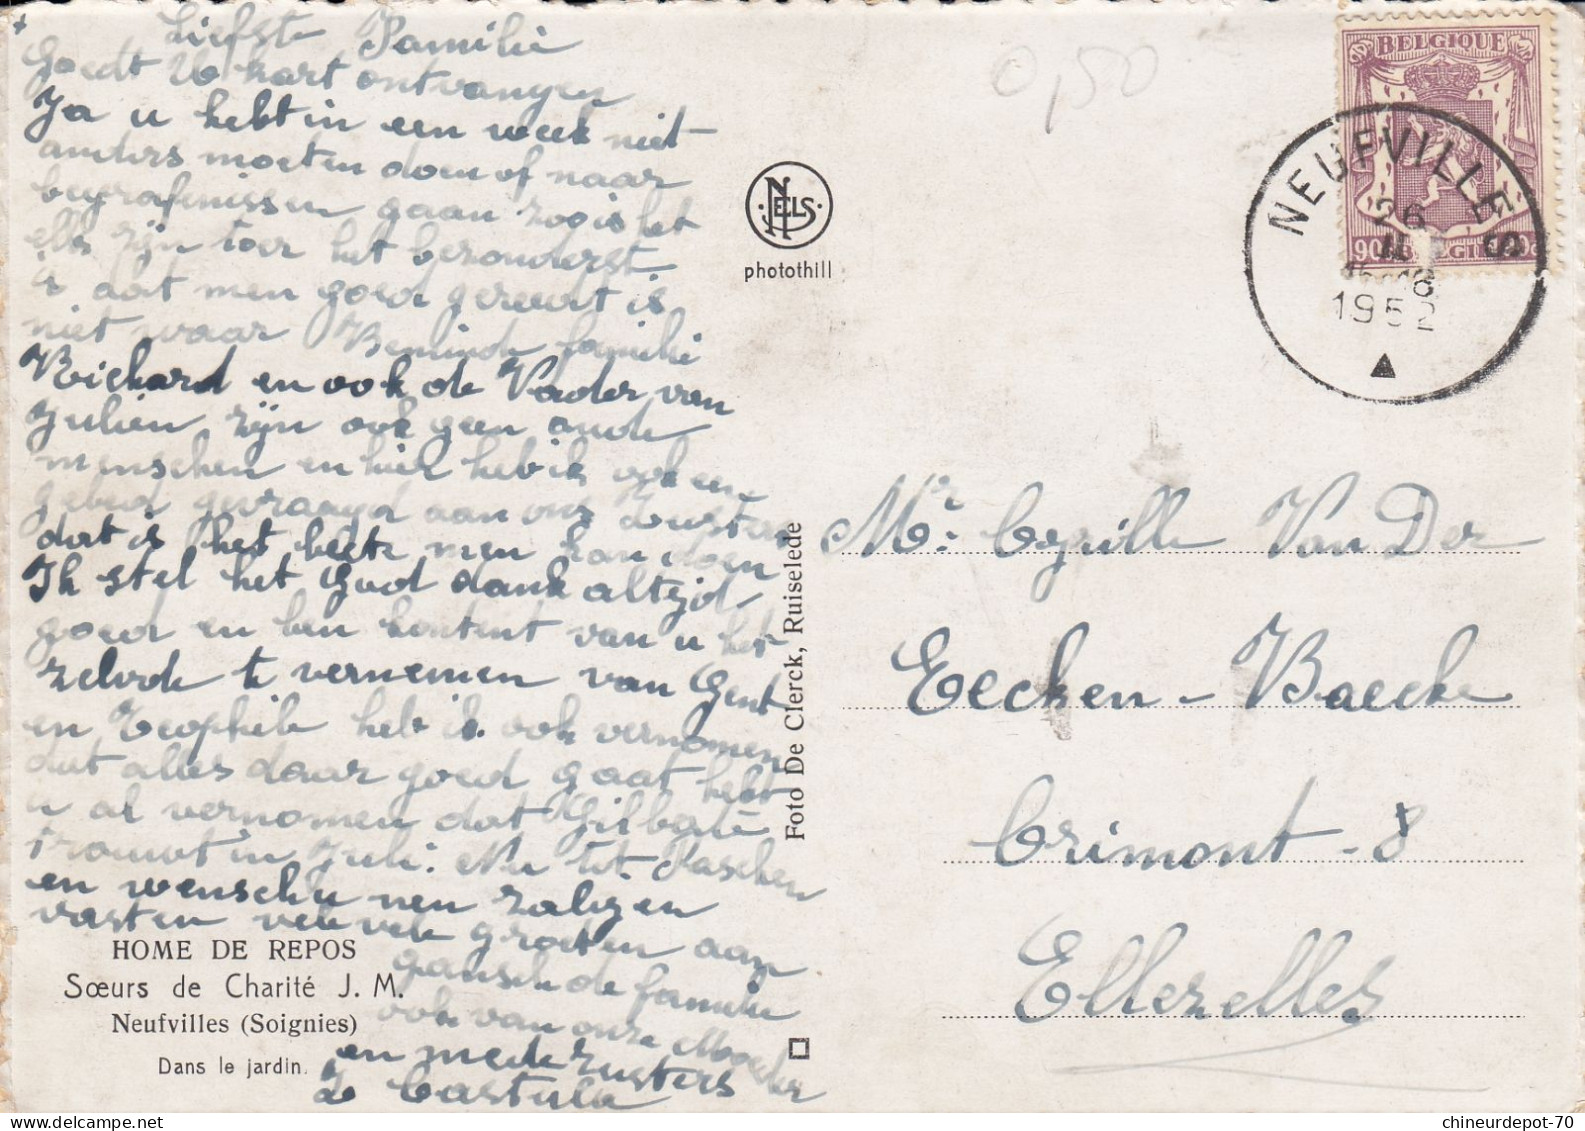 Liefste Familie
Goedt Uw kart ontvangen
Ja u hebt in een week niet
anders moeten doen of naar
begrafenissen gaan zoo is het
elk zijn toer het bezonderst
is dat men goed gereed is
niet waar Beminde familie
Richard en ook de Vader van
Julien zijn ook geen oude
menschen en hier heb ik ook een
gebed gevraagd aan ons Zusters
dat is het beste men kan doen
Ik stel het God dank altijd
goed en ben kontent van u het
zelvde te vernemen van Gent
en Teophile heb ik ook vernomen
dat alles daar goed gaat hebt
u al vernomen dat Gilberte
trouwt in Juli. Nu tot Paschen
en wensch u nen zaligen
vasten vele vele groeten aan
gansch de familie
ook van onze Moeder
en mede zusters
Zr Castula
HOME DE REPOS
Sœurs de Charité J. M.
Neufvilles (Soignies)
Dans le jardin.
NELS
photothill
Foto De Clerck, Ruiselede
0,50
BELGIQUE
90c BELGIE 90c
NEUFVILLES
26 II
1952
Mr. Cyrille Van Der
Eecken-Baecke
Crimont - 8
Ellezelles
chineurdepot-70